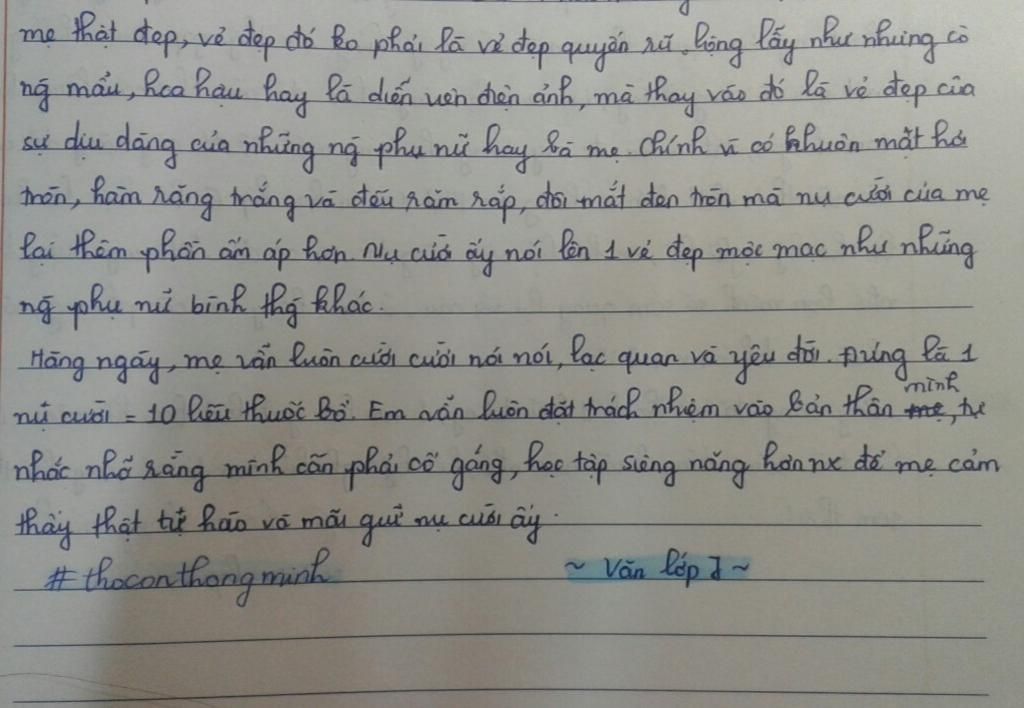 mẹ thật đẹp, vẻ đẹp đó ko phải là vẻ đẹp quyến rũ, lộng lẫy như nhưng cô
ng mẫu, hoa hậu hay là diễn viên điện ảnh, mà thay vào đó là vẻ đẹp của
sự dịu dàng của những ng phụ nữ hay bà mẹ. Chính vì có khuôn mặt hơi
tròn, hàm răng trắng và đều răm rắp, đôi mắt đen tròn mà nụ cười của mẹ
lại thêm phần ấm áp hơn. Nụ cười ấy nói lên 1 vẻ đẹp mộc mạc như những
ng phụ nữ bình thg khác.
Hằng ngày, mẹ vẫn luôn cười cười nói nói, lạc quan và yêu đời. Đúng là 1
nụ cười = 10 liều thuốc bổ. Em vẫn luôn đặt trách nhiệm vào bản thân mình, tự
nhắc nhở rằng mình cần phải cố gắng, học tập siêng năng hơn nx để mẹ cảm
thấy thật tự hào và mãi giữ nụ cười ấy.
#thoconthongminh ~ Văn lớp 7 ~